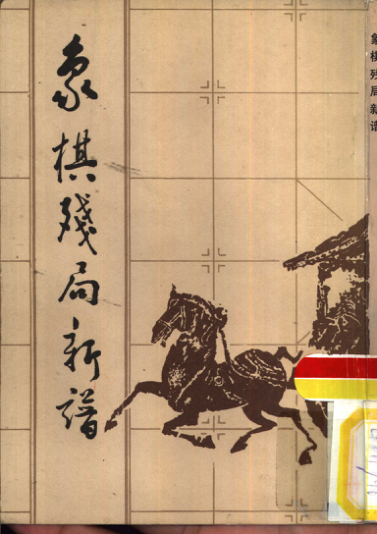 象棋残局新谱
象棋残局新谱